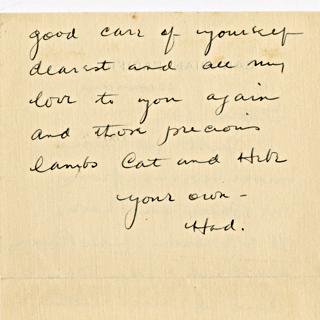 good care of yourself
dearest and all my
love to you again
and those precious
lambs Cat and
your own -
Had.